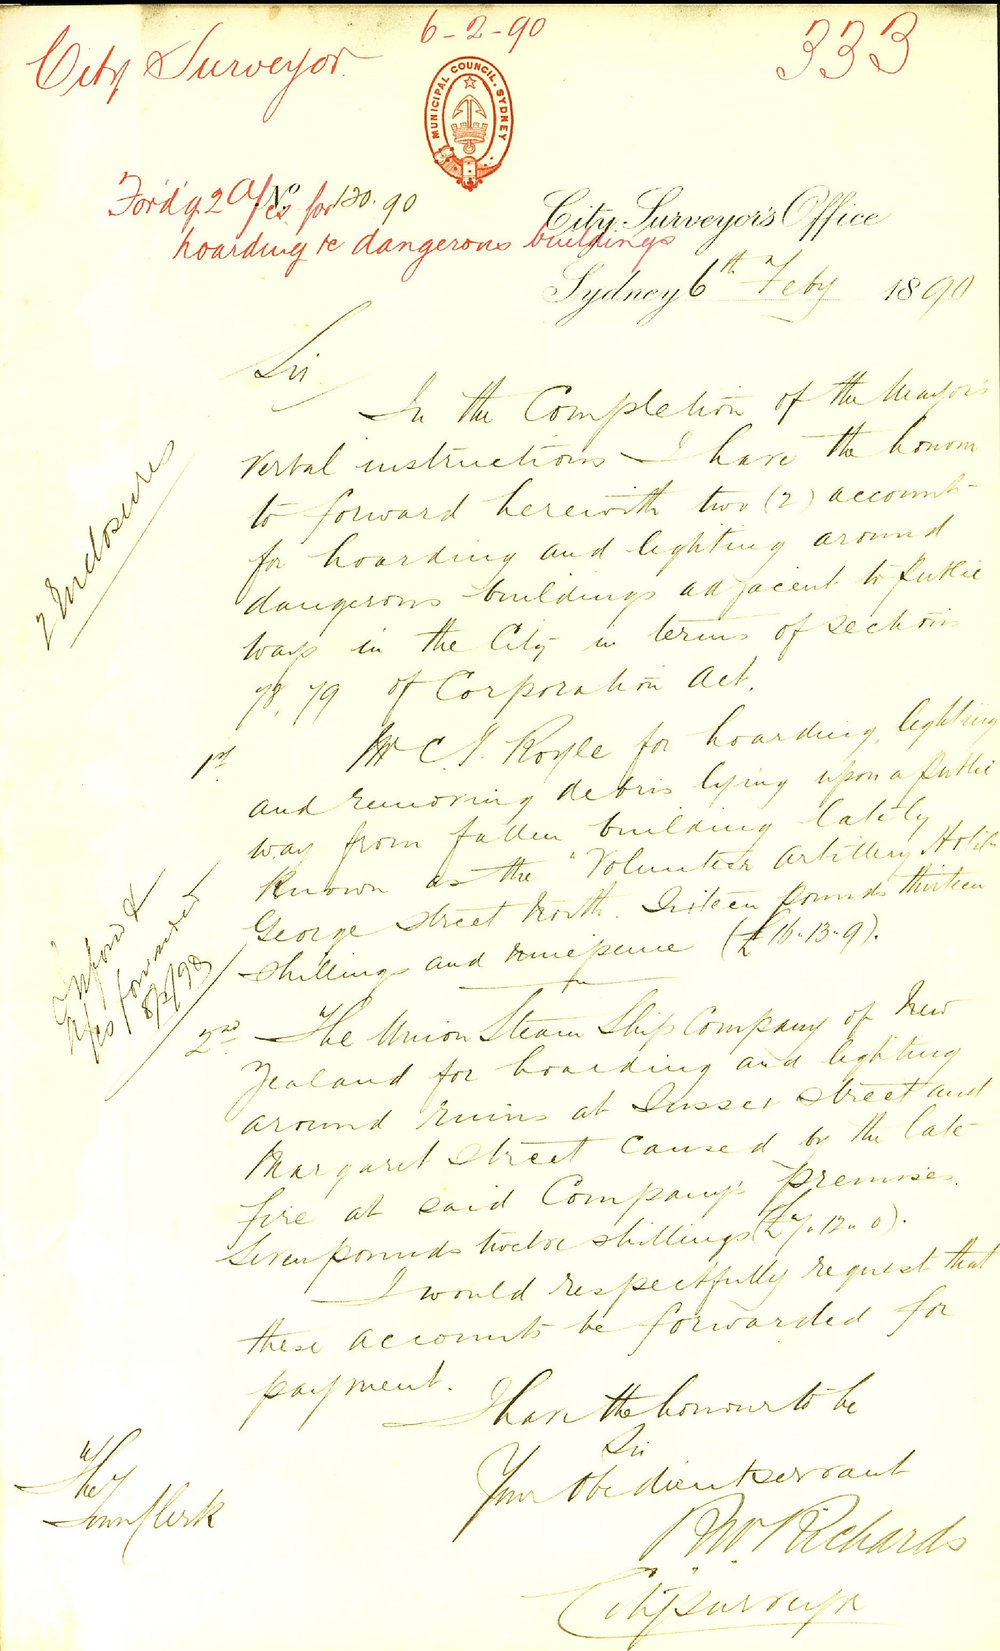 6-2-90
333
City Surveyor
MUNICIPAL COUNCIL. SYDNEY
Ford'g. 2 A/cs for
No. 120.90
hoarding &c dangerous buildings
City Surveyor's Office
Sydney 6th Feby 1890
Sir
In the Completion of the Mayor's
Verbal instructions I have the honour
to forward herewith two (2) accounts
for hoarding and lighting around
dangerous buildings adjacent to public
ways in the City in terms of sections
78, 79 of Corporation Act.
2 Enclosures
1st. Mr C. J. Royle for hoarding, lighting
and removing debris lying upon a public
way from fallen building lately
known as the "Volunteer Artillery Hotel
George Street North. Sixteen pounds thirteen
shillings and ninepence (£16-13-9).
Inform &
A/cs forwarded
2nd. The Union Steam Ship Company of New
Zealand for hoarding and lighting
around ruins at Sussex Street and
Margaret Street caused by the late
fire at said Company's premises.
Seven pounds twelve shillings (£7.12.0).
I would respectfully request that
these accounts be forwarded for
payment.
I have the honour to be
Sir
Your Obedient servant
Richards
City Surveyor
The
Town Clerk